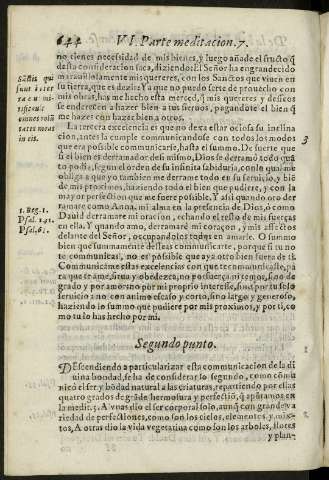 644 VI. Parte meditacion. 7.
no tienes necessidad de mis bienes, y luego añade el fructo q̃
desta consideracion saca, diziendo: El Señor ha engrandecido
marauillosamente mis quereres, con los Sanctos que viuen en
su tierra, que es dezir: Ya que no puedo serte de prouecho con
mis obras, hazme hecho esta merced, q̃ mis quereres y desseos
se endereçen a hazer bien a tus sieruos, pagandote el bien q̃
me hazes con hazer bien a otros.
Sāctis qui
sunt in ter
ra eius mi
rificauit
omnes volū
tates meas
in eis.
La tercera excelencia es que no dexa estar ociosa su inclina
cion, antes la cumple comunicandose con todos los modos
que era possible comunicarse, hasta el summo. De suerte que
si el bien es derramador de si mismo, Dios se derramò todo quā
to podia, segun el orden de su infinita sabiduria, con lo qual me
obliga a que yo tambien me derrame todo en su seruicio, y biē
de mis proximos, haziendo todo el bien que pudiere, y con la
mayor perfection que me fuere possible. Y assi quando oro der
ramare como Anna, mi alma en la presencia de Dios, ò como
Dauid derramare mi oracion, echando el resto de mis fuerças
en ella. Y quando amo, derramarè mi coraçon, y mis affectos
delante del Señor, occupandolos todos en amarle. O summo
bien que summamente desseas comunicarte, porque si tu no
te comunicas, no es possible que aya otro bien fuera de ti.
Comunicame estas excelencias con que te comunicaste, pa
ra que te ame, sirua y obedezca, no por fuerça ni temor, sino de
grado y por amor: no por mi proprio interesse, sino por tu solo
seruicio: no con animo escaso y corto, sino largo y generoso,
haziendo lo summo que pudiere por mis proximos, y por ti, co
mo tu lo has hecho por mi.
3
1. Reg. 1.
Psal. 141.
Psal. 61.
Segundo punto.
DEscendiendo a particularizar esta comunicacion de la di
uina bondad, se ha de considerar lo segundo, como comu
nicò el ser y bōdad natural a las criaturas, repartiendo por ellas
quatro grados de grāde hermosura y perfectiō, q̃ apūtamos en
la medit. 5. A vnas dio el ser corporal solo, aunq̃ con grande va
riedad de perfectiones, como son los cielos, elementos, y mix-
tos, A otras dio la vida vegetatiua como son los arboles, flores
y plan-